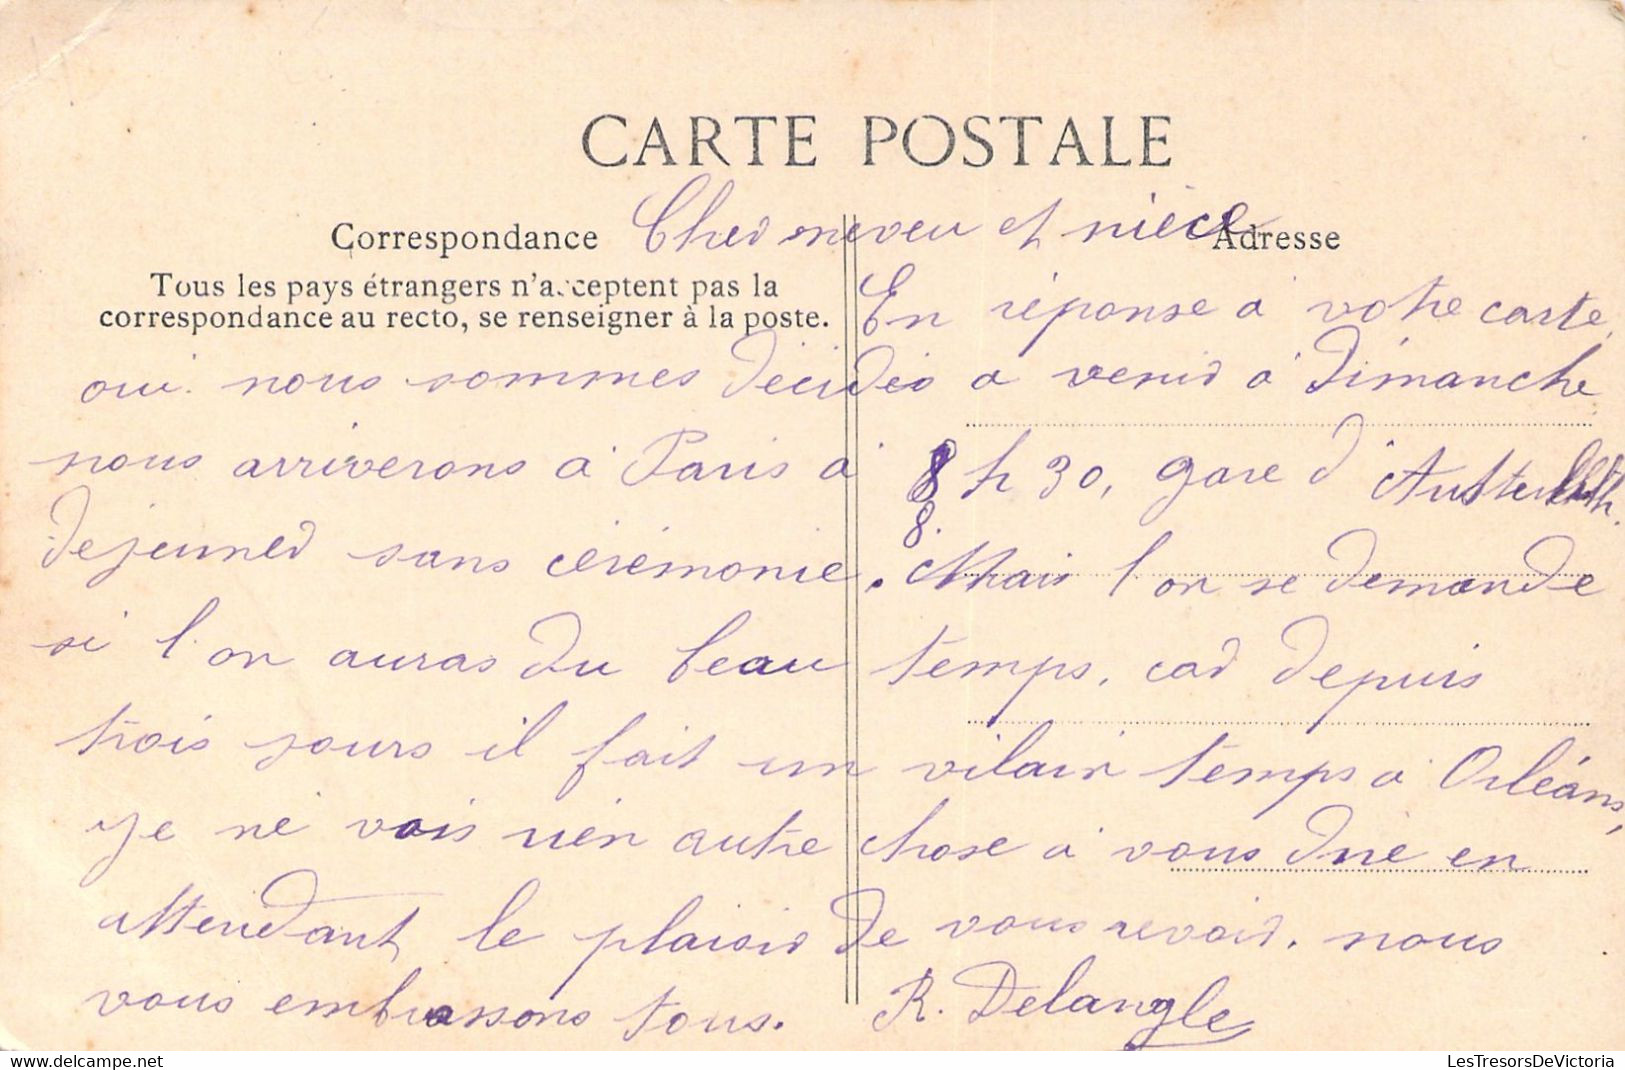 CARTE POSTALE
Correspondance
Adresse
Tous les pays étrangers n'acceptent pas la
correspondance au recto, se renseigner à la poste.
Cher neveu et nièce
En réponse a votre carte,
oui nous sommes décidés a venir a Dimanche
nous arriverons a Paris a 8 h 30, gare d'Austerlitz.
8.
dejeuner sans cérémonie. Mais l'on se demande
si l'on auras du beau temps, car depuis
trois jours il fait un vilain temps a Orléans,
je ne vois rien autre chose a vous dire en
attendant le plaisir de vous revoir. nous
vous embrassons tous. R. Delangle
LesTresorsDeVictoria
www.delcampe.net